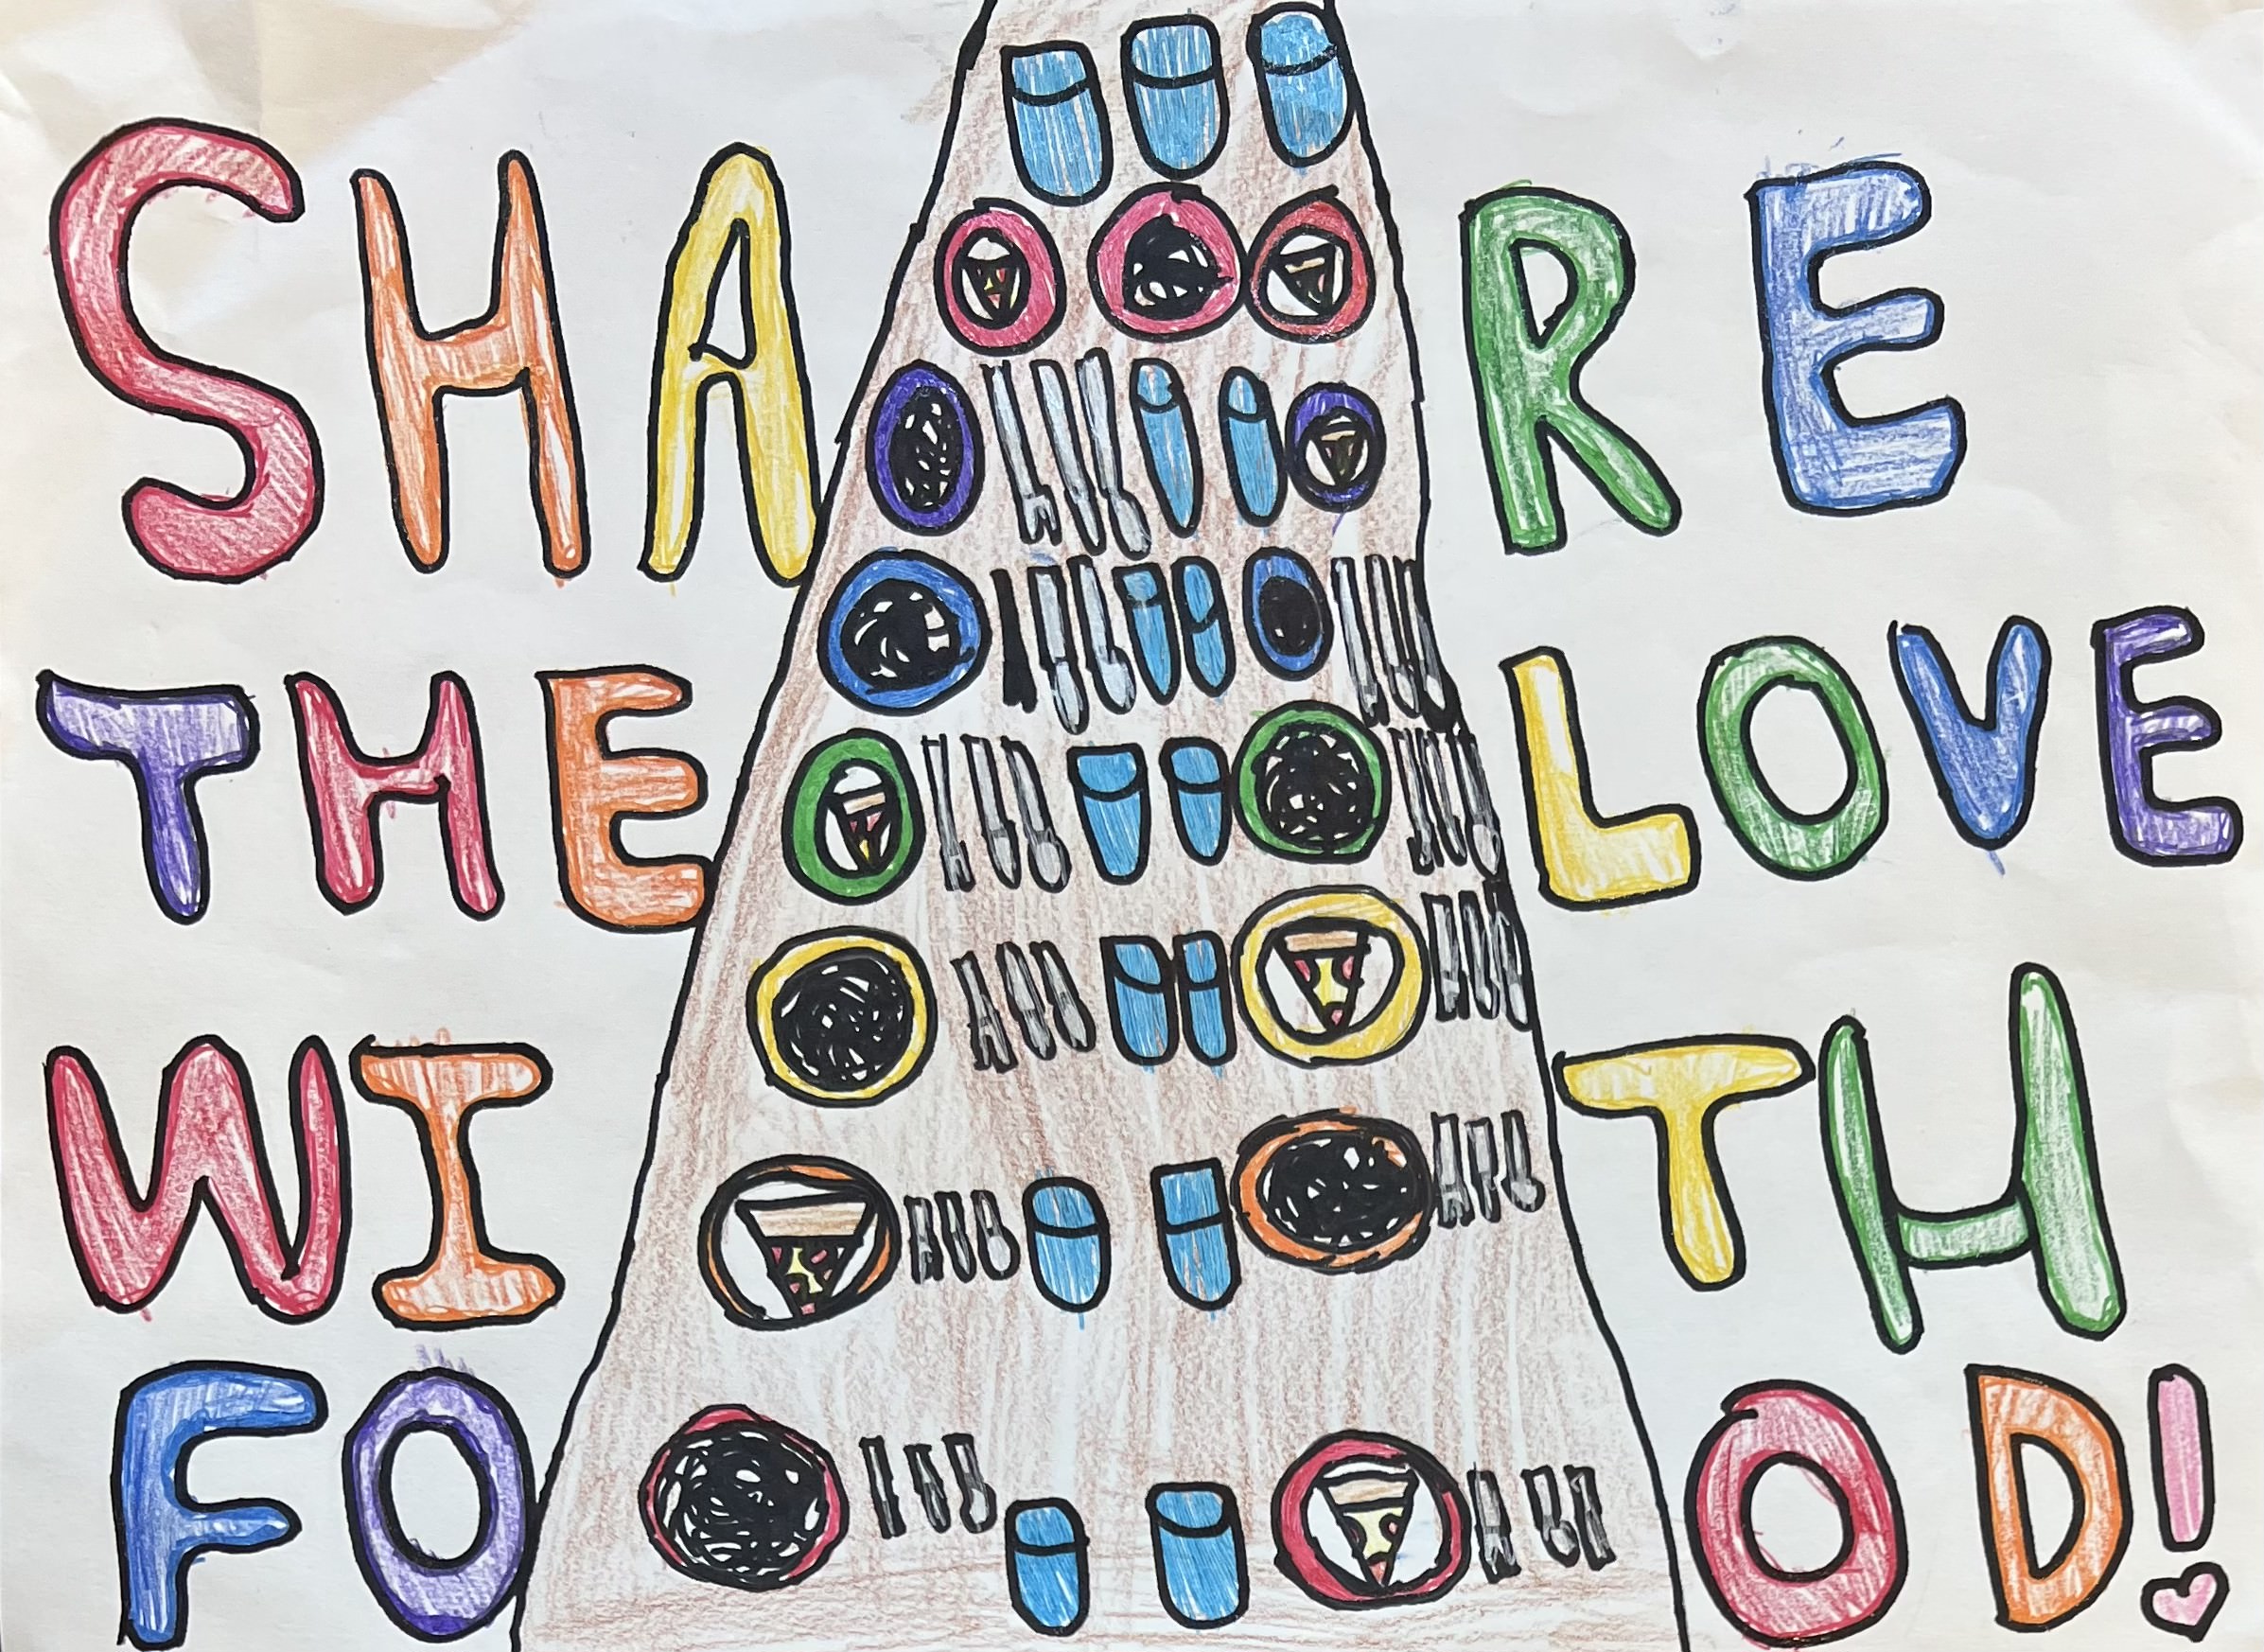 SHARE
THE LOVE
WITH
FOOD!